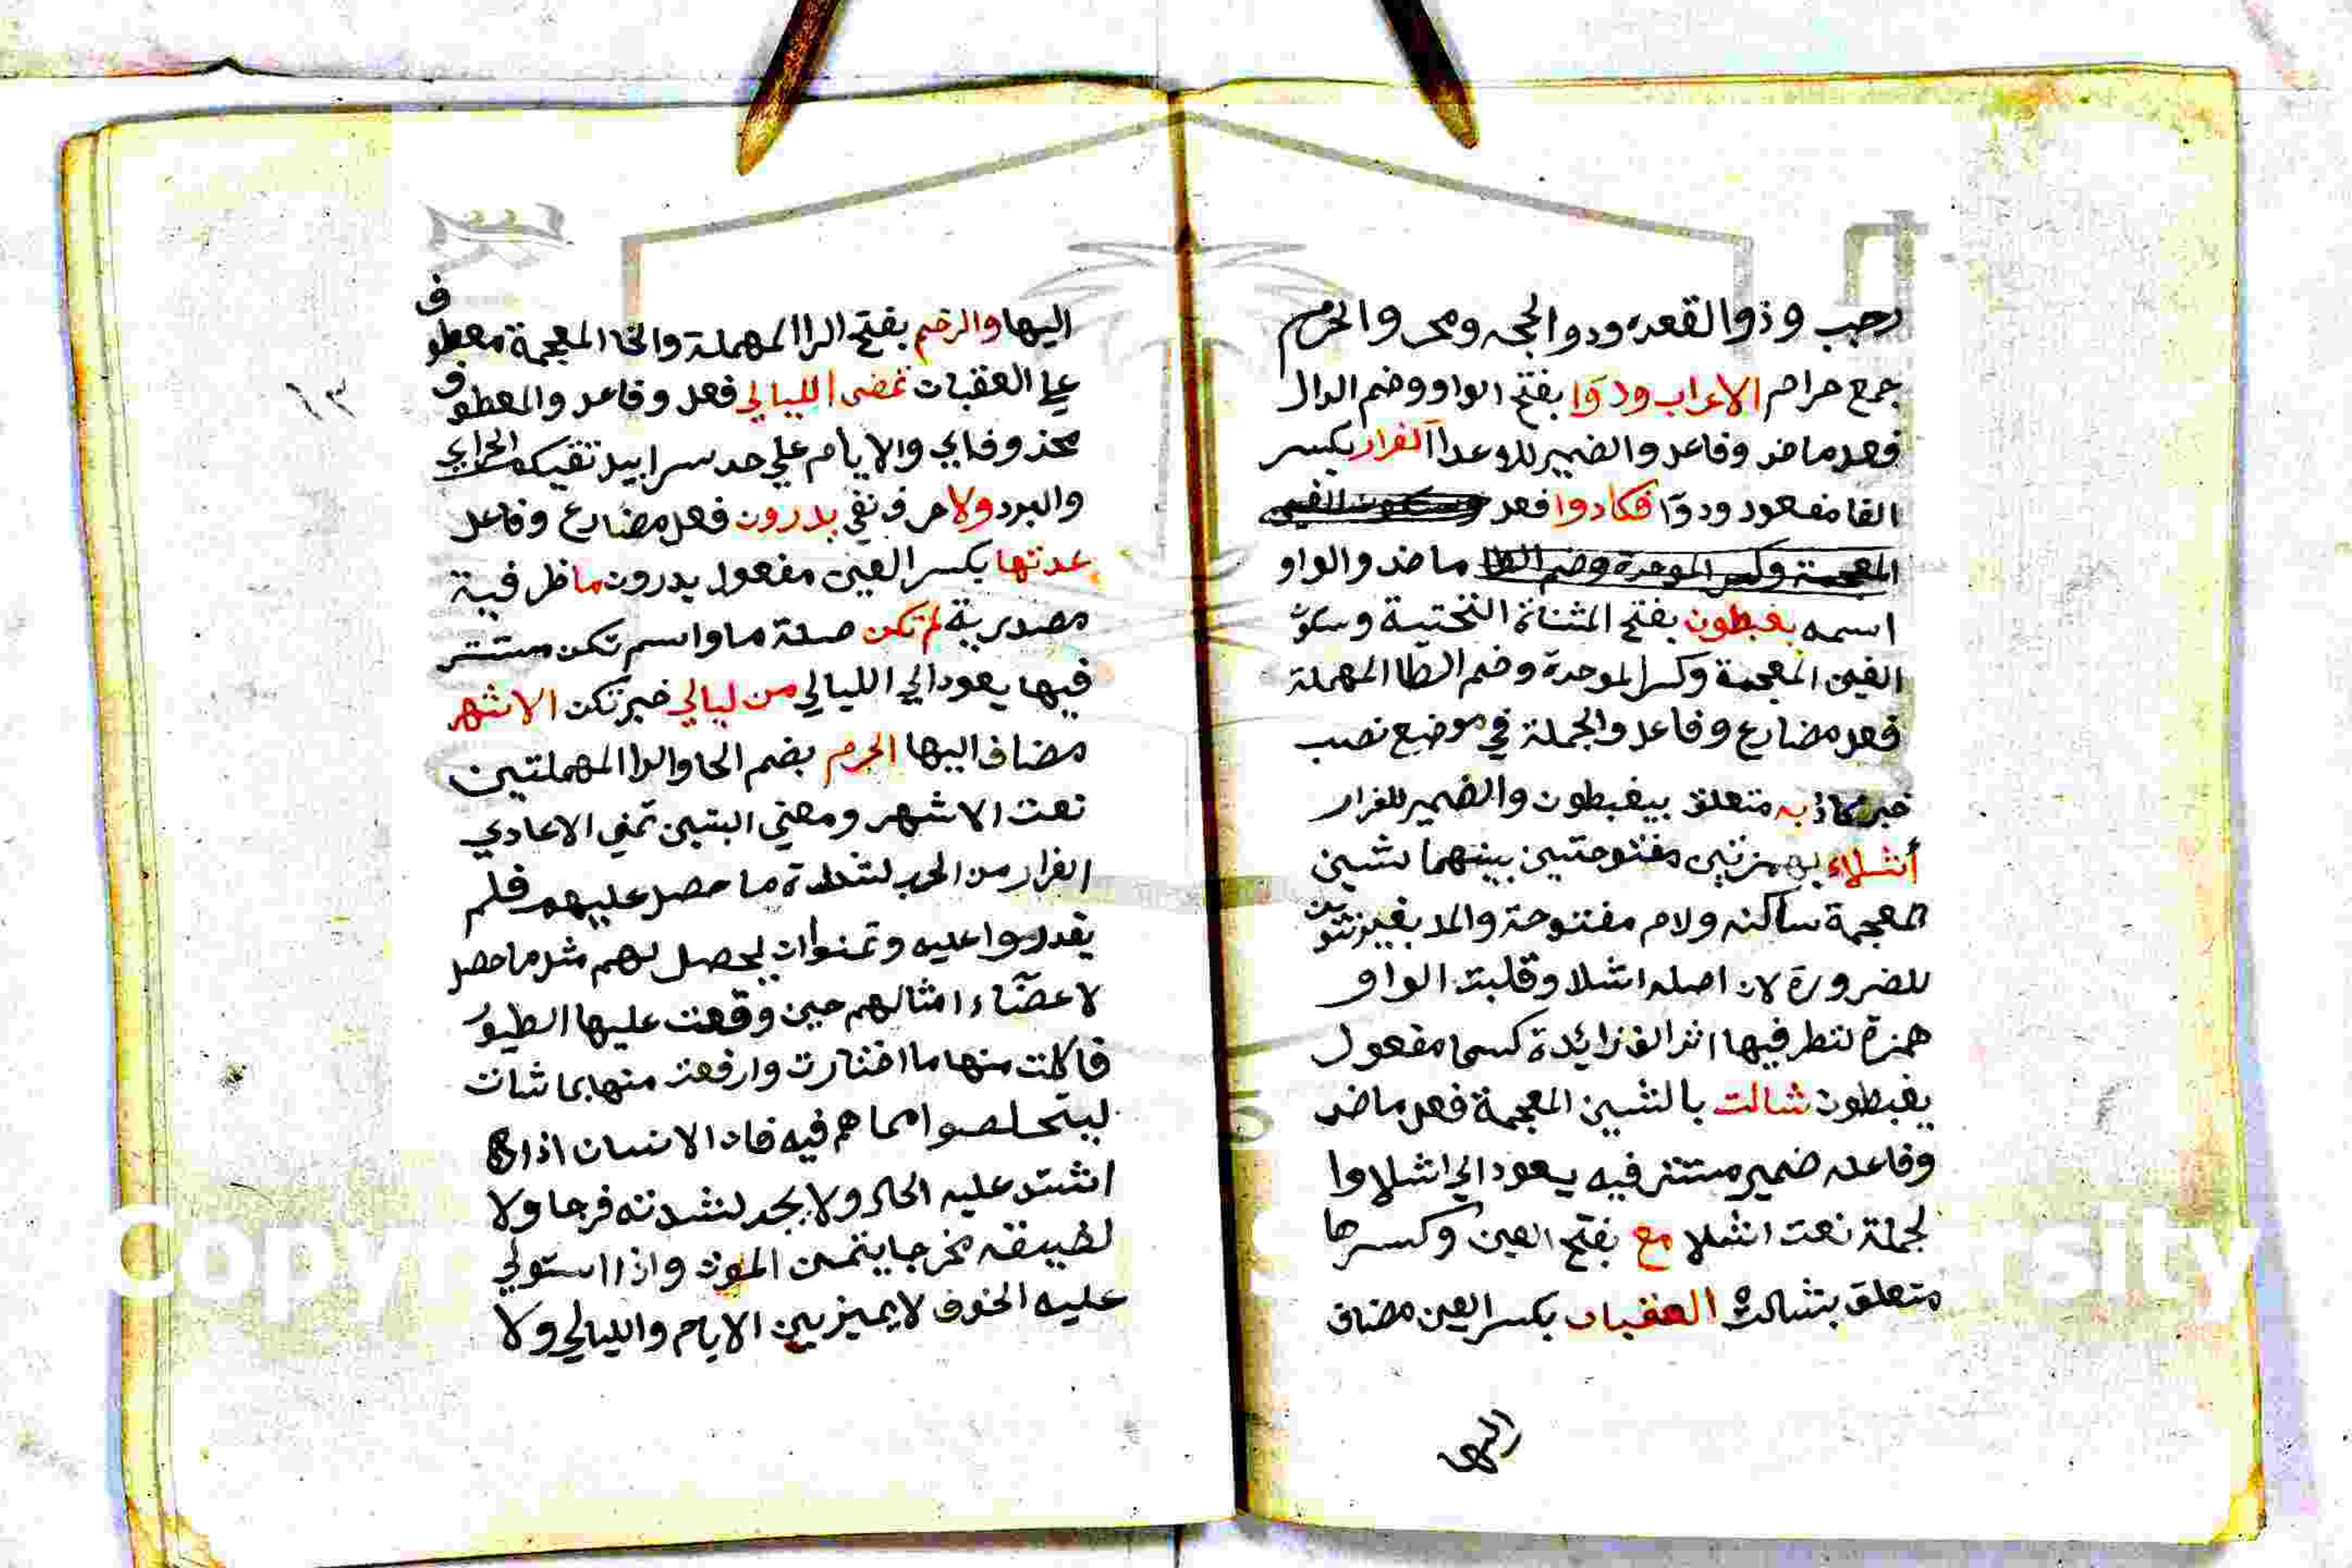 رجب وذوالقعده ودوالحجه ومحر والحرم
جمع حرام الاعراب ودوا بفتح الواو وضم الدال
فعل ماض وفاعل والضمير للاعدا الفرار بكسر
الفا مفعول ودوا فكادوا فعل
ماض والواو
اسمه يغبطون بفتح المثناة التحتية وسكون
الغين المعجمة وكسر الموحدة وضم الطا المهملة
فعل مضارع وفاعل والجملة في موضع نصب
خبر كاد به متعلق بيغبطون والضمير للفرار
أشلاء بهمزتين مفتوحتين بينهما شين
المعجمة ساكنه ولام مفتوحة والمد بغير تنوين
للضرورة لان اصله اشلا وقلبت الواو
همزة لتطرفيها اثر الف زائدة كسما مفعول
يغبطون شالت بالشين المعجمة فعل ماض
وفاعله ضمير مستتر فيه يعود الي اشلا وا
لجملة نعت اشلا مع بفتح العين وكسرها
متعلق بشالت العقبان بكسر العين مضاف
اليها
اليها والرخم بفتح الرا المهملة والخا المعجمة معطوف
علي العقبان تمضي الليالي فعل وفاعل والمعطوف
محذوف اي والايام علي حد سرابيل تقيكم الحر اي
والبرد ولا حرف نفي يدرون فعل مضارع وفاعل
عدتها بكسر العين مفعول يدرون ما ظرفية
مصدرية لم تكن صلة ما واسم تكن مستتر
فيها يعود الي الليالي من ليالي خبر تكن الاشهر
مضاف اليها الحرم بضم الحا والرا المهملتين
نعت الاشهر ومعني البتين تمني الاعادي
الفرار من الحرب لشدة ما حصل عليهم فلم
يقدروا عليه وتمنوا ان يحصل لهم مثل ما حصل
لاعضاء امثالهم حين وقعت عليها الطيور
فاكلت منها ما اختارت وارفعت منها ما شات
ليتخلصوا مما هم فيه فان الانسان اذا
اشتد عليه الحال ولا يجد لشدته فرجا ولا
لضيقه مخرجا يتمنى الموت واذا استولي
عليه الخوف لا يميز بين الايام والليالي ولا
١٣